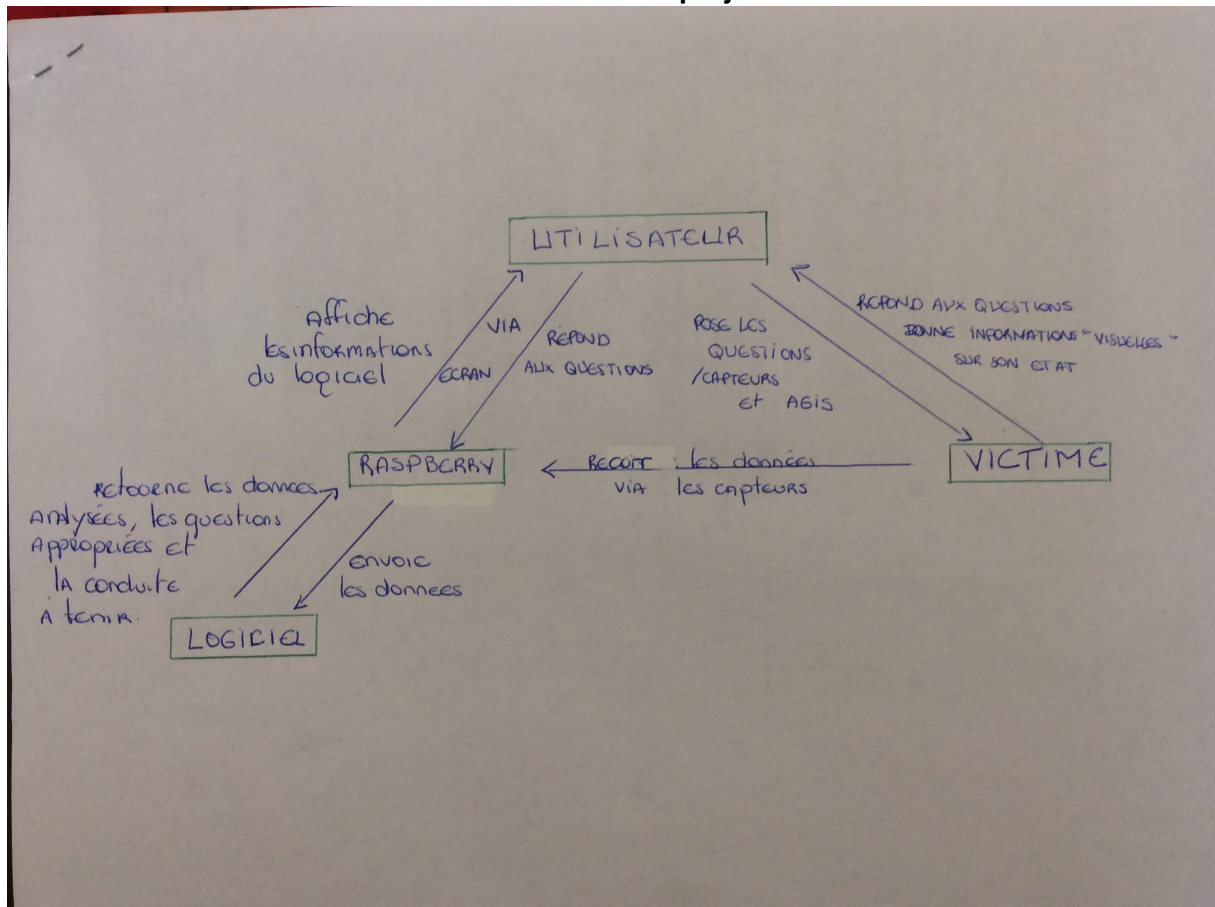 UTILISATEUR
Affiche
les informations
du logiciel
VIA
ECRAN
RÉPOND
AUX QUESTIONS
POSE LES
QUESTIONS
/CAPTEURS
Et AGIS
REPOND AUX QUESTIONS
DONNE INFORMATIONS "VISUELLES"
SUR SON ETAT
RASPBERRY
RECOIT les données
VIA les capteurs
VICTIME
Retourne les données
Analysées, les questions
Appropriées et
la conduite
A tenir.
envoie
les donnees
LOGICIEL